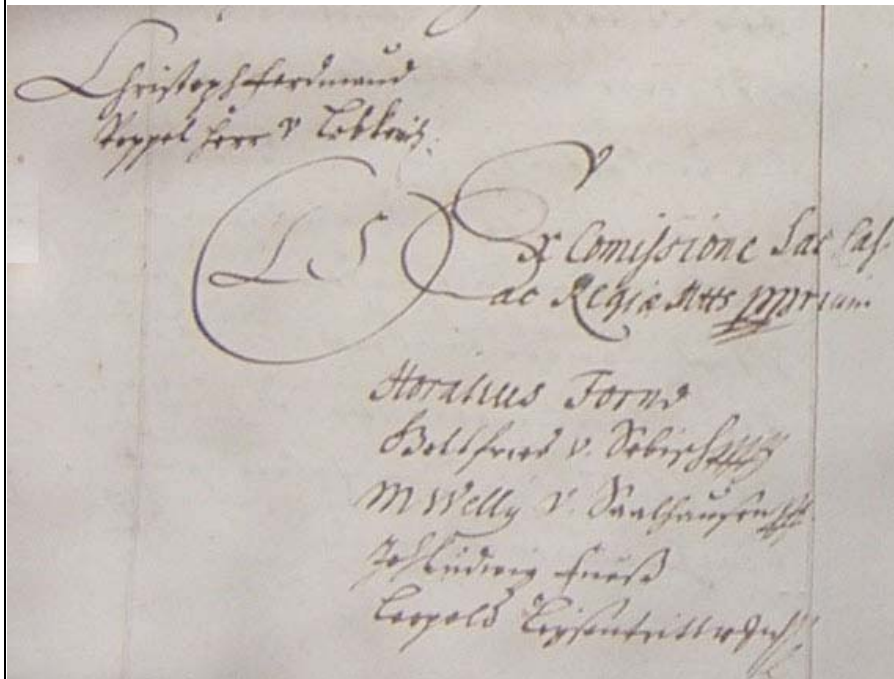 Christoph Ferdinand
Poppel Herr v Lobkwitz.
LS
Ex Comissione Sac Cas
ac Regiæ Mtts pprium
Horatius Forno
Gottfried v. Sebisch
M Welly v. Saalhausen
Joh Ludwig
Leopold